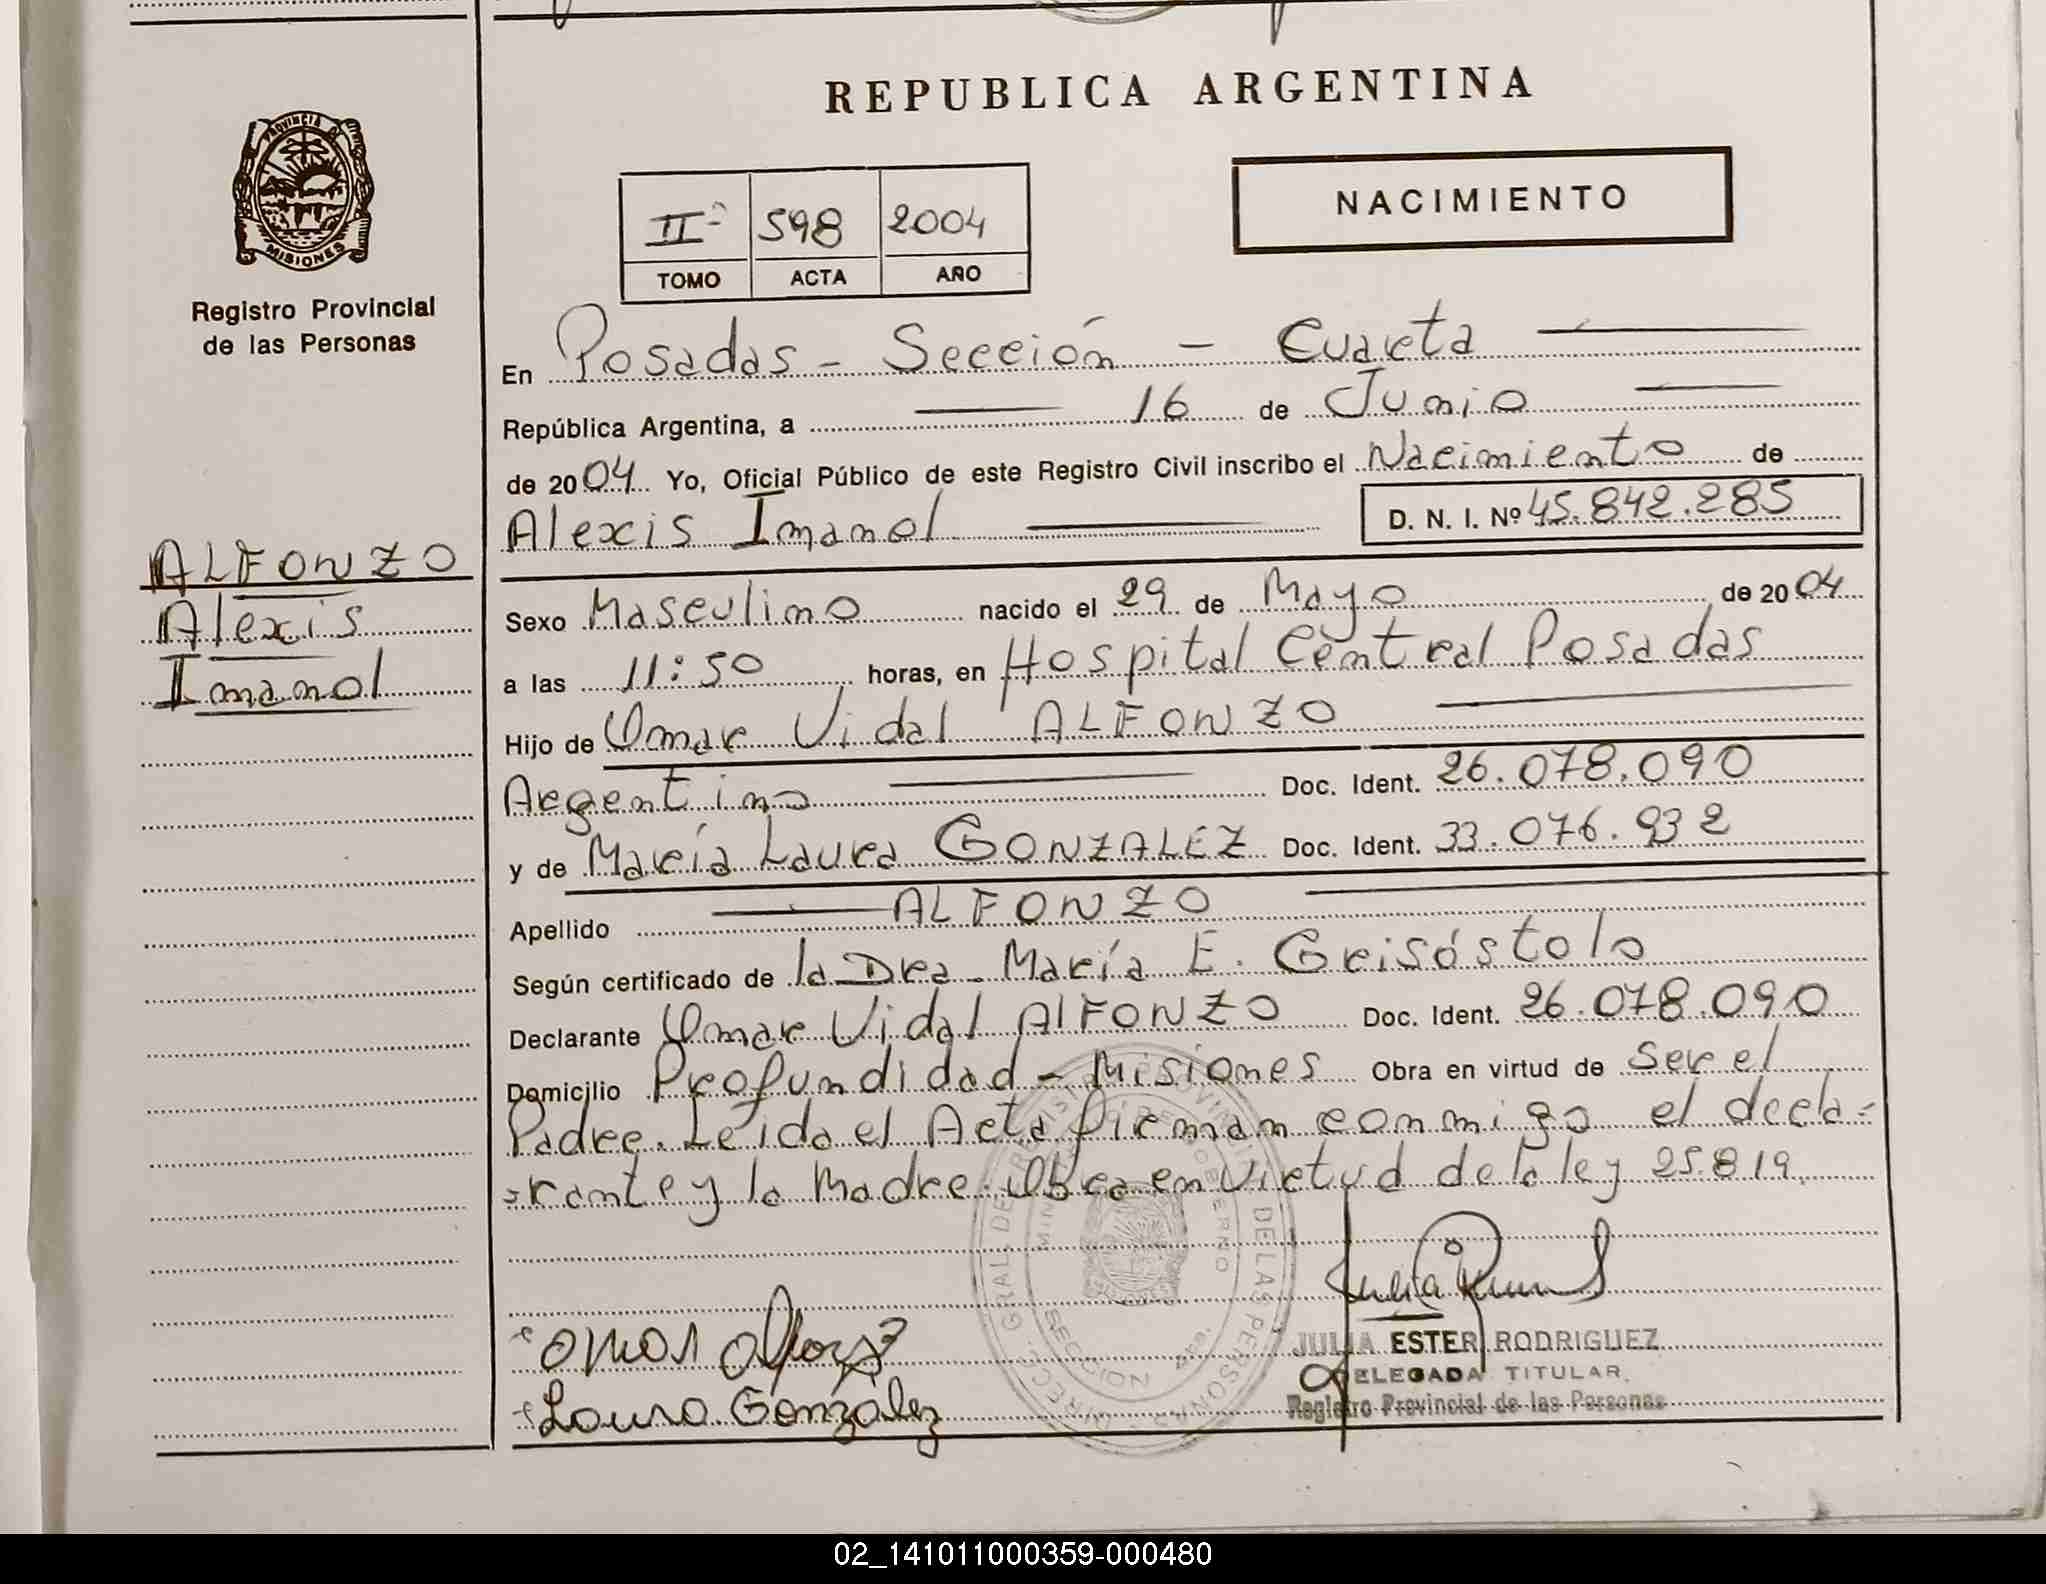 REPUBLICA ARGENTINA
PROVINCIA DE MISIONES
Registro Provincial
de las Personas
NACIMIENTO
IIº 598 2004
TOMO ACTA AÑO
En Posadas - Sección - Cuarta
República Argentina, a 16 de Junio
de 2004 Yo, Oficial Público de este Registro Civil inscribo el Nacimiento de
Alexis Imanol D. N. I. Nº 45.842.285
ALFONZO
Alexis
Imanol
Sexo Masculino nacido el 29 de Mayo de 2004
a las 11:50 horas, en Hospital Central Posadas
Hijo de Omar Vidal ALFONZO
Argentino Doc. Ident. 26.078.090
y de María Laura GONZALEZ Doc. Ident. 33.076.932
Apellido ALFONZO
Según certificado de la Dra. María E. Grisóstolo
Declarante Omar Vidal AlFONZO Doc. Ident. 26.078.090
Domicilio Profundidad - Misiones Obra en virtud de Ser el
Padre. Leida el Acta firman conmigo el decla=
=rante y la Madre. Obra en virtud de la ley 25.819.
omar alfonzo
Laura Gonzalez
JULIA ESTER RODRIGUEZ
DELEGADA TITULAR
Registro Provincial de las Personas
02_141011000359-000480